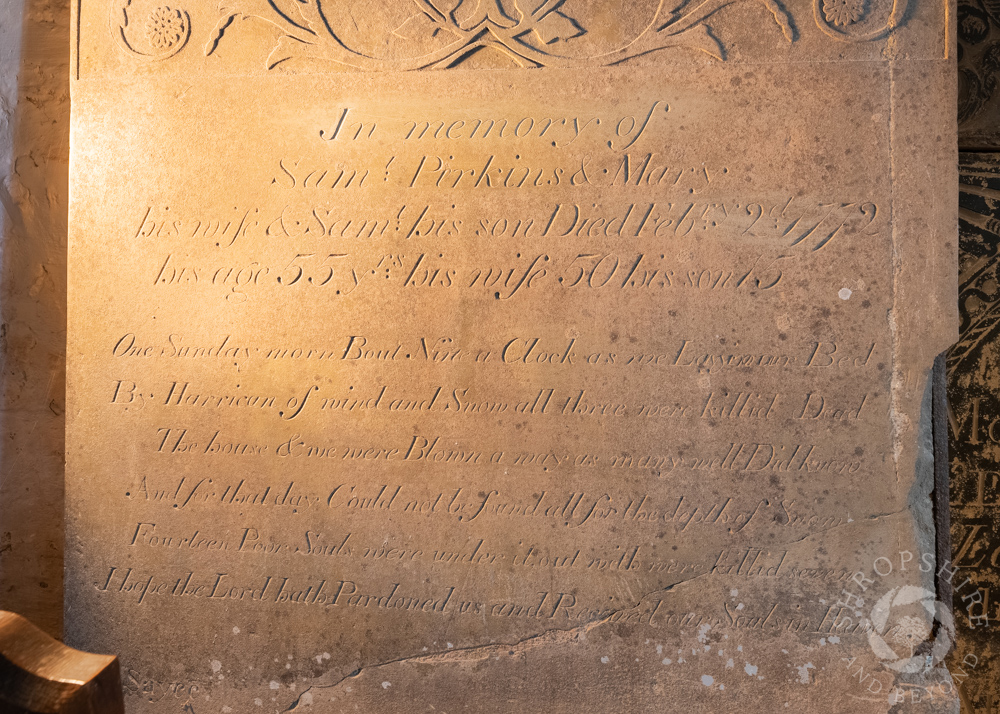 In memory of
Sam.t Pirkins & Mary
his wife & Sam.t his son Died Feb.ry 2.d 1772
his age 55 y.rs his wife 50 his son 15
One Sunday morn Bout Nine a Clock as we Lay in Bed
By Harrican of wind and Snow all three were killid Dead
The house & we were Blown a way as many well Did know
And for that day Could not be fund all for the depth of Snow
Fourteen Poor Souls were under it out with were killid seven
I hope the Lord hath Pardoned us and Receivd our Souls in
Sayce
SHROPSHIRE
AND BEYOND